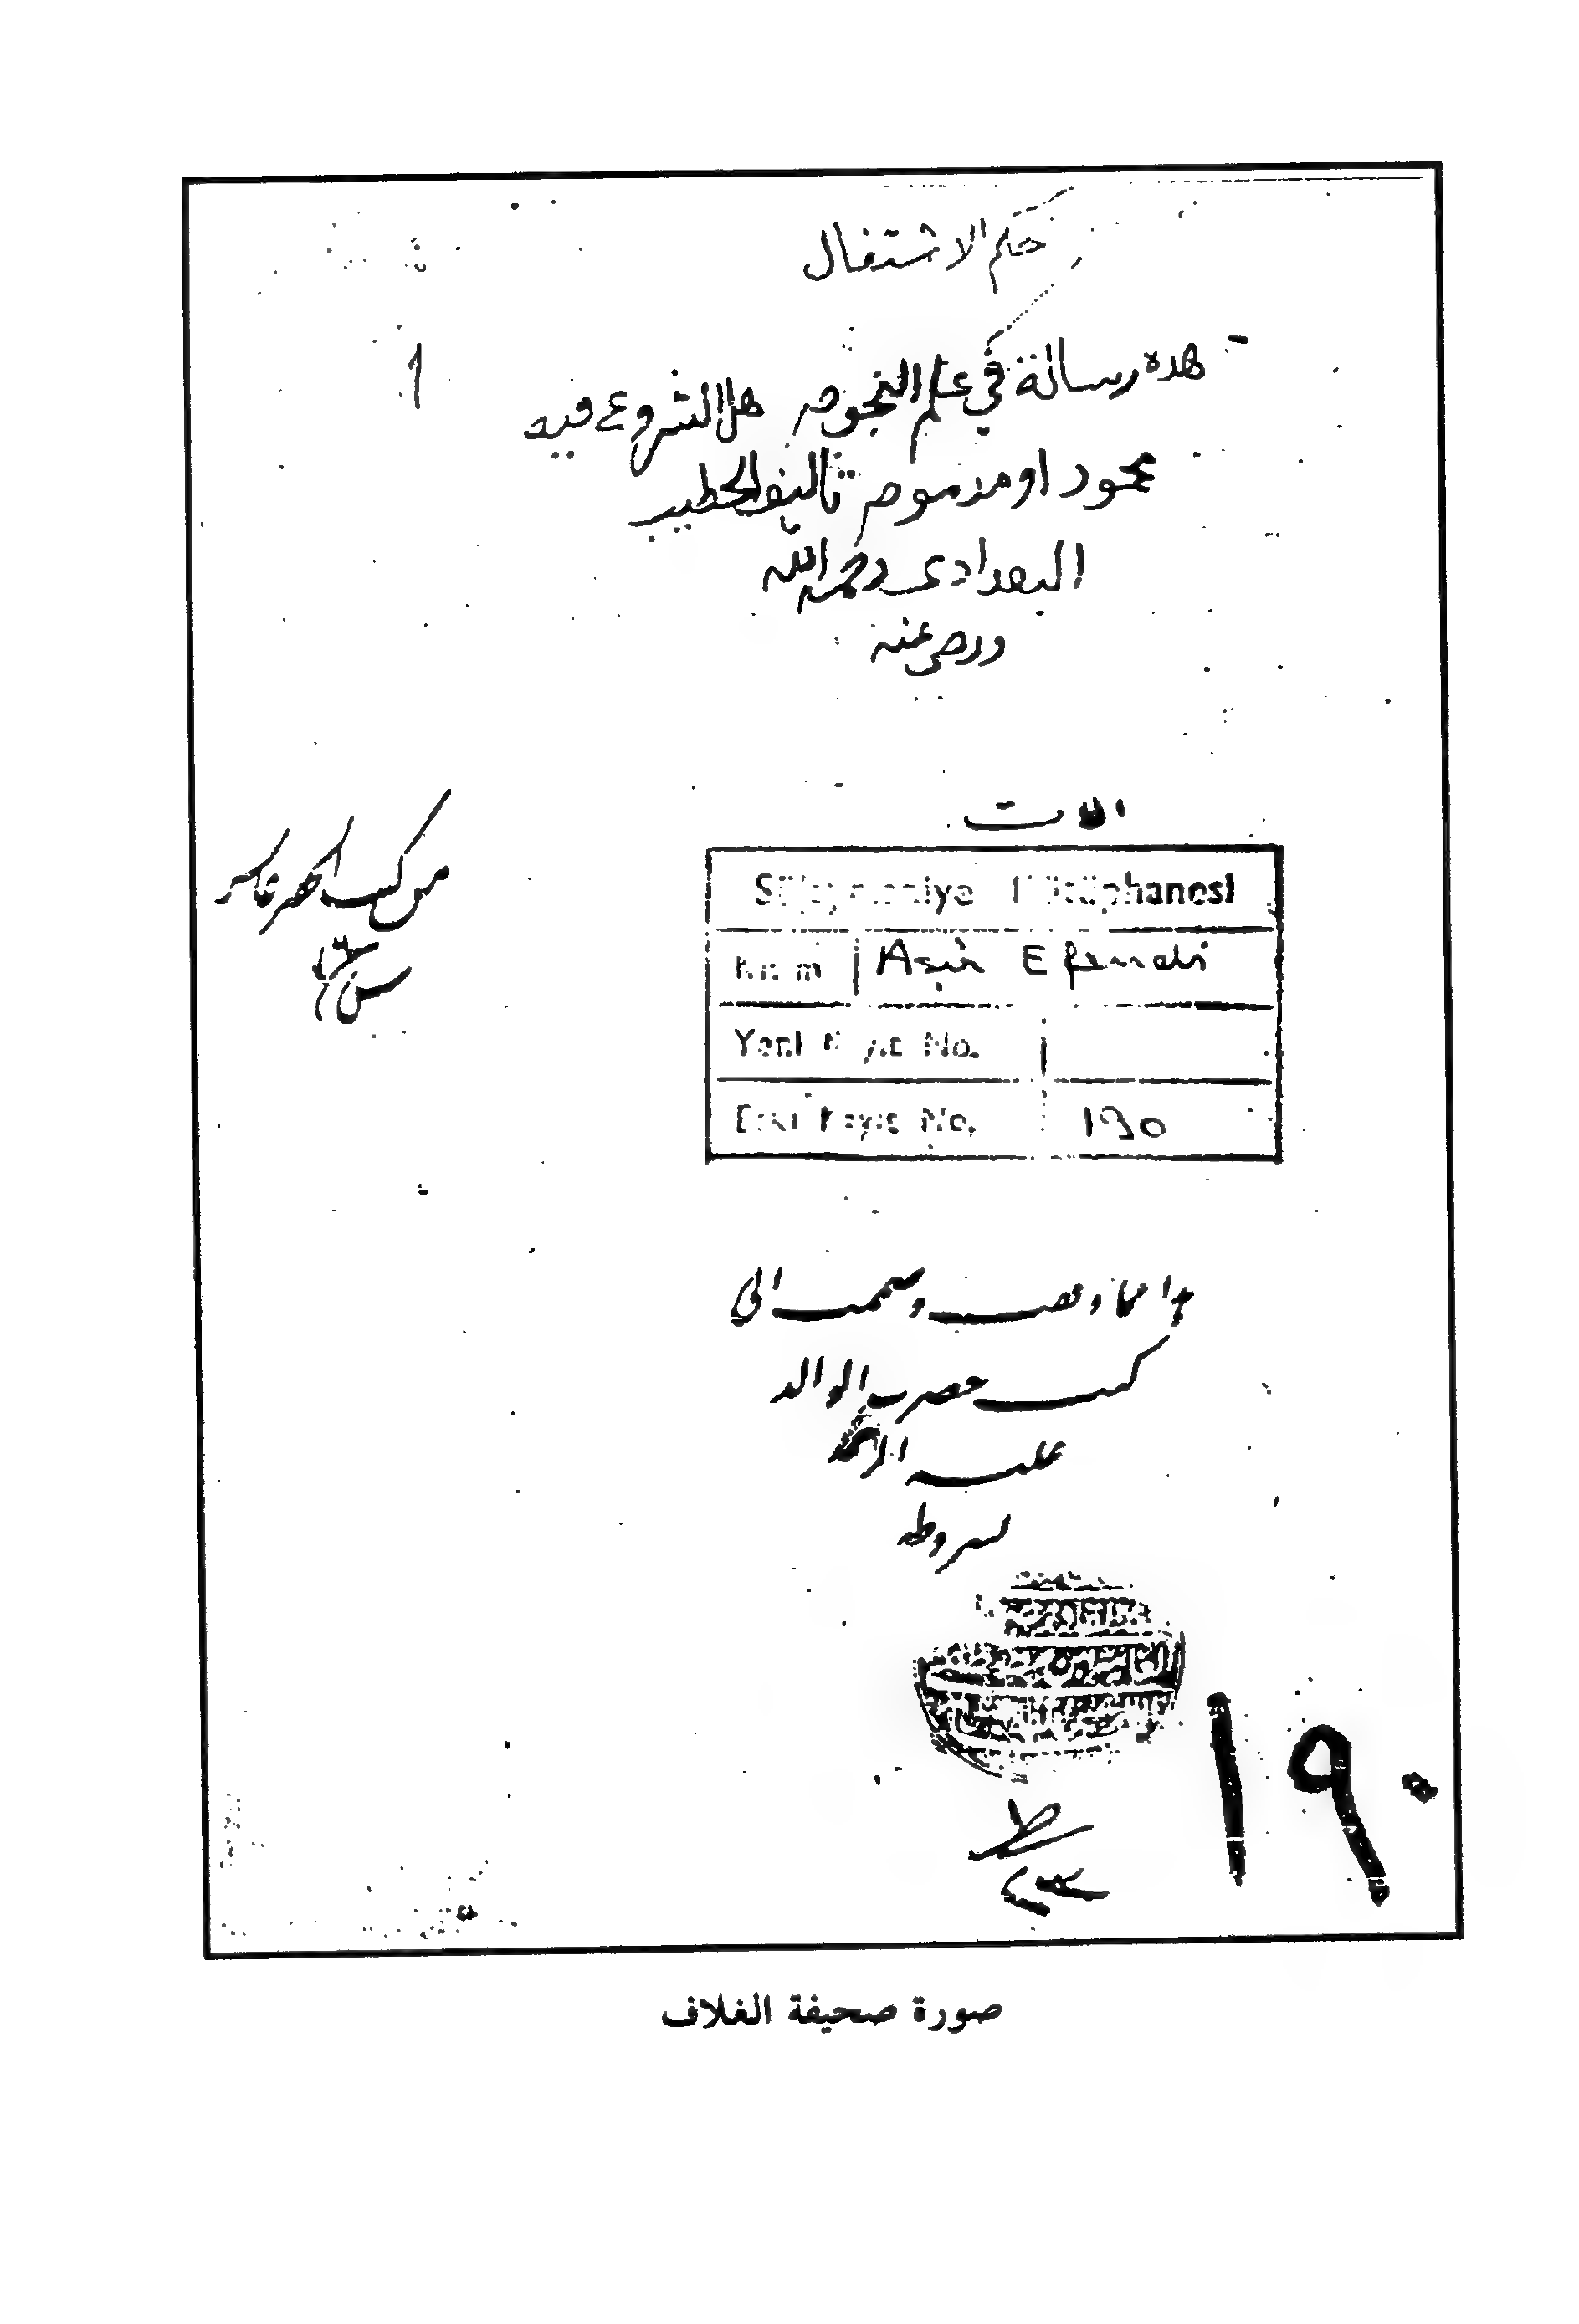 حكم الاشتغال
هذه رسالة في علم النجوم هل الشروع فيه
١
محمود او مذموم تأليف الخطيب
البغدادى رحمه الله
ورضى عنه
من كتب
Süleymaniye Kütüphanesi
Kısmı Aşir Efendi
Yeni Kayıt No.
Eski Kayıt No. 190
مما وقفت وضممت الى
كتب حضرت الوالد
عليه الرحمة
بشروطه
١٩٠
صورة صحيفة الغلاف